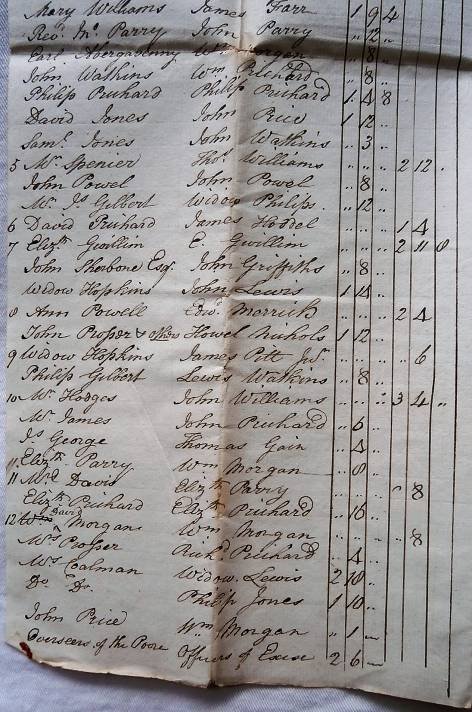 Mary Williams James Farr 1 9 4
Revd. Jno. Parry John Parry " 12 "
Earl Abergavenny Wm Morgan " 8 "
John Watkins Wm Prichard " 8 "
Philip Prichard Philip Prichard 1 4 8
David Jones John Rice 1 12 "
Saml. Jones John Watkins " 3 "
5 Mr. Spenier Thos. Williams " " " 2 12 "
John Powel John Powel " 8 "
Mr. Js. Gilbert Widow Philips " 12 "
6 David Prichard James Hoddel " " " 1 4
7 Elizth Gwillim E. Gwillim " " " 2 11 8
John Shobone Esqr. John Griffiths " 8 "
Widow Hopkins John Lewis 1 14 "
8 Ann Powell Edwd. Merrick " " " 2 4
John Prosser & others Howel Nichols 1 12 "
9 Widow Hopkins James Pitt Junr. " " " " 6
Philip Gilbert Lewis Watkins " 8 "
10 Mr. Hodges John Williams " " " 3 4 "
Mr. James John Prichard " 6 "
Js. George Thomas Gain " 4 "
11. Elizth Parry Wm Morgan " 8 "
11 Mrs. Davis Elizth Parry " " " " 8
Elizth Prichard Elizth Prichard " 16 "
12 David Morgan Wm Morgan " " " " 8
Mrs. Prosser Richd Prichard " 4 "
Mrs. Coalman Widow Lewis 2 10 "
Do. Do. Philip Jones 1 10 "
John Price Wm Morgan " 1 —
Overseers of the Poore Officers of Excise 2 6 —